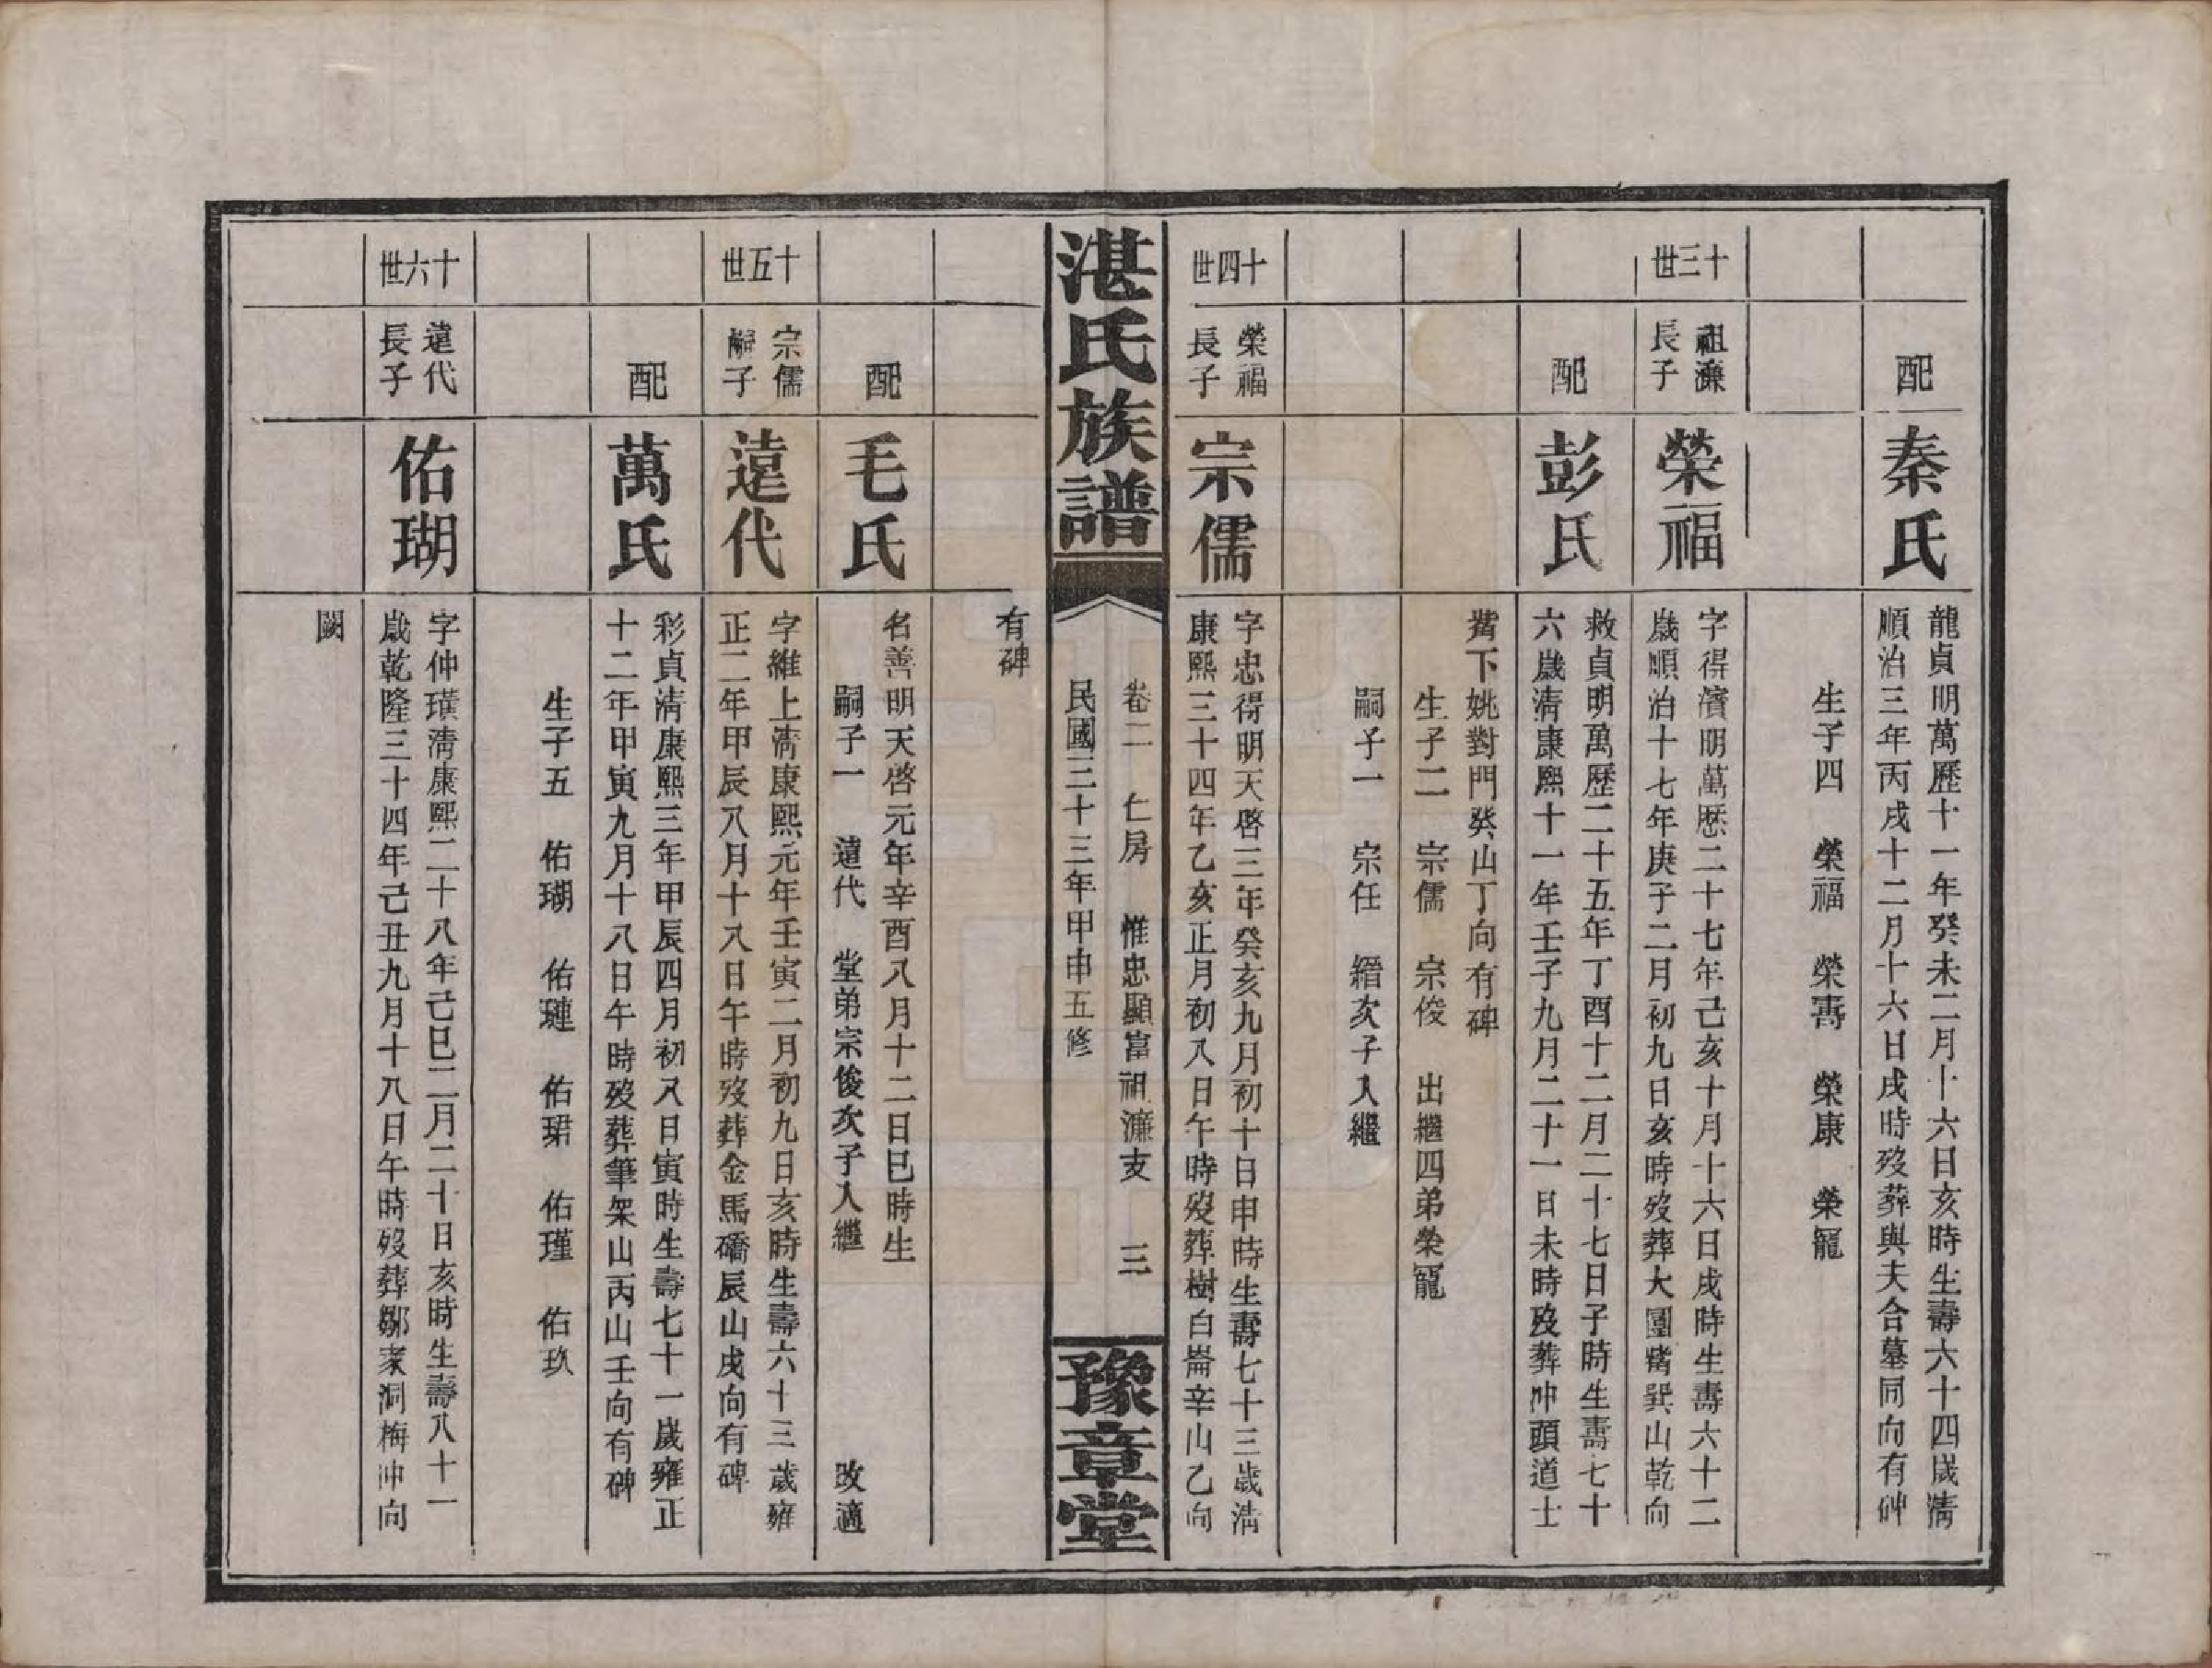 配
秦氏
龍貞明萬歷十一年癸未二月十六日亥時生壽六十四歲淸
順治三年丙戌十二月十六日戌時歿葬與夫合墓同向有碑
生子四 榮福 榮壽 榮康 榮寵
十三世
祖濂
長子
榮福
字得濱明萬歷二十七年己亥十月十六日戌時生壽六十二
歲順治十七年庚子二月初九日亥時歿葬大圍觜巽山乾向
配
彭氏
救貞明萬歷二十五年丁酉十二月二十七日子時生壽七十
六歲淸康熙十一年壬子九月二十一日未時歿葬冲頭道士
觜下姚對門癸山丁向有碑
生子二 宗儒 宗俊 出繼四弟榮寵
嗣子一 宗任 縉次子入繼
十四世
榮福
長子
宗儒
字忠得明天啓三年癸亥九月初十日申時生壽七十三歲淸
康熙三十四年乙亥正月初八日午時歿葬樹白崙辛山乙向
湛氏族譜
卷二 仁房 惟忠顯富祖濂支 三
民國三十三年甲申五修
豫章堂
有碑
配
毛氏
名善明天啓元年辛酉八月十二日巳時生
嗣子一 遠代 堂弟宗俊次子入繼 改適
十五世
宗儒
嗣子
遠代
字維上淸康熙元年壬寅二月初九日亥時生壽六十三歲雍
正二年甲辰八月十八日午時歿葬金馬礄辰山戌向有碑
配
萬氏
彩貞淸康熙三年甲辰四月初八日寅時生壽七十一歲雍正
十二年甲寅九月十八日午時歿葬筆架山丙山壬向有碑
生子五 佑瑚 佑璉 佑珺 佑瑾 佑玖
十六世
遠代
長子
佑瑚
字仲璜淸康熙二十八年己巳二月二十日亥時生壽八十一
歲乾隆三十四年己丑九月十八日午時歿葬鄒家洞梅冲向
闕